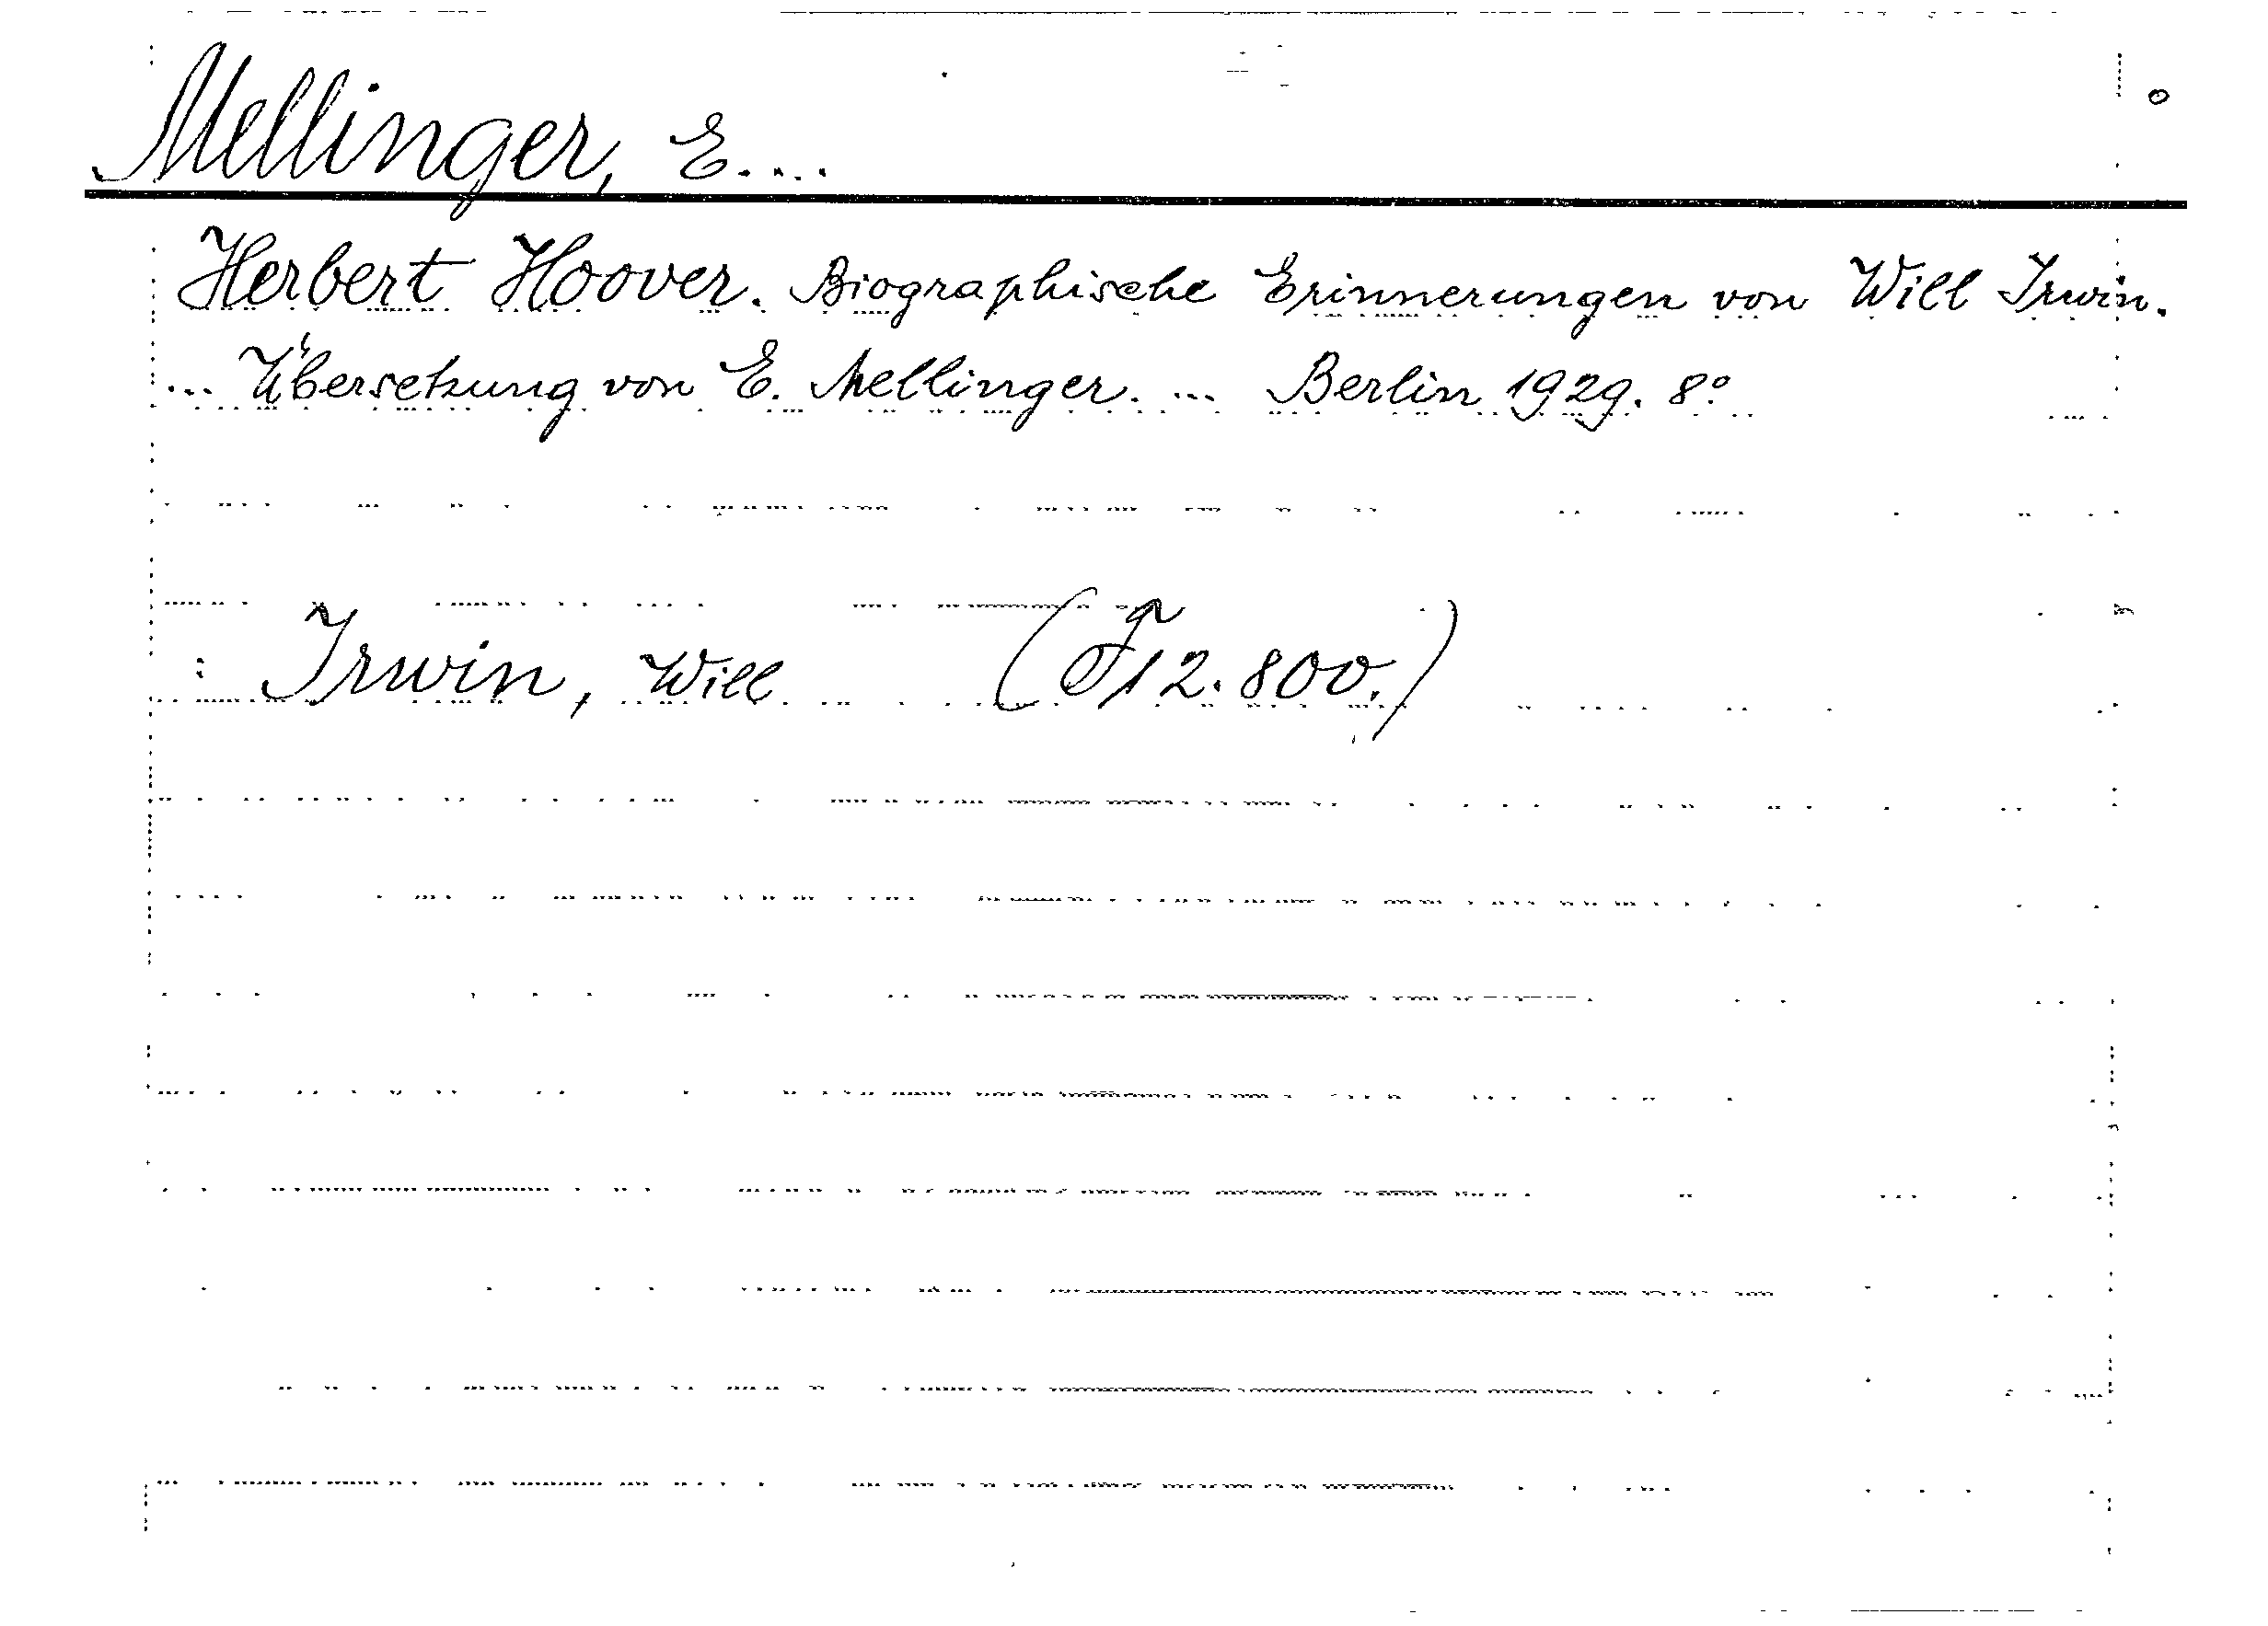 Mellinger, E....
Herbert Hoover. Biographische Erinnerungen von Will Irwin.
... Übersetzung von E. Mellinger. ... Berlin 1929. 8°
: Irwin, Will (F12.800.)